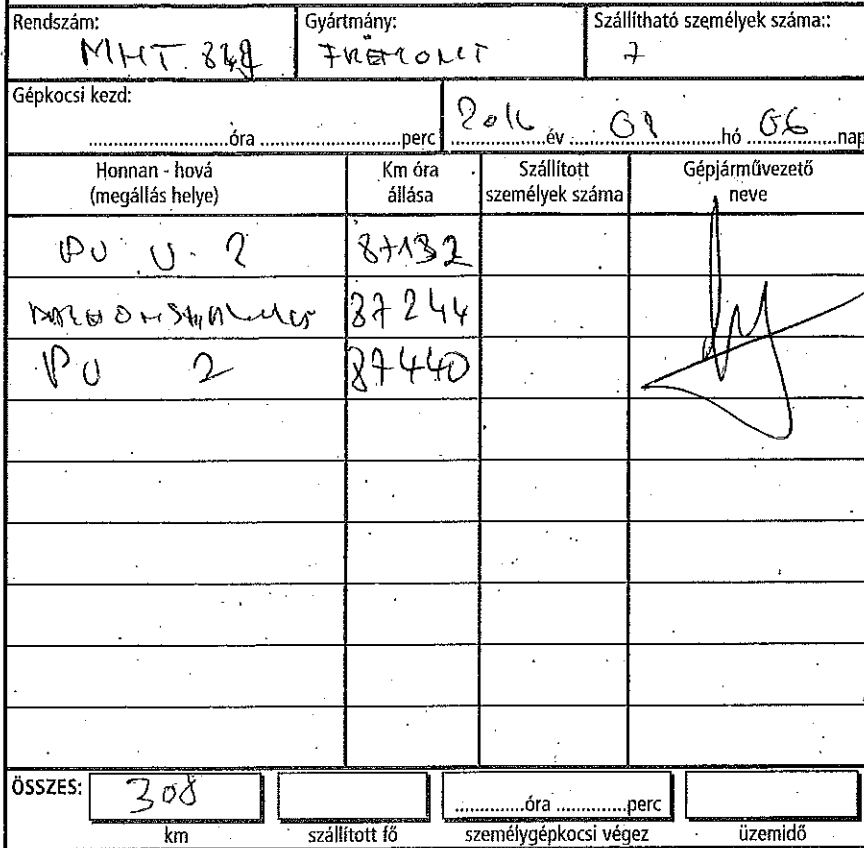 Rendszám: Gyártmány: Szállítható személyek száma::
MHT 849 FREMONT 7
Gépkocsi kezd:
..........óra ..........perc 2016 év 09 hó 06 nap
Honnan - hová (megállás helye) Km óra állása Szállított személyek száma Gépjárművezető neve
PU U. 2 87132
87244
PU 2 87440
ÖSSZES: 308 ..........óra ..........perc
km szállított fő személygépkocsi végez üzemidő